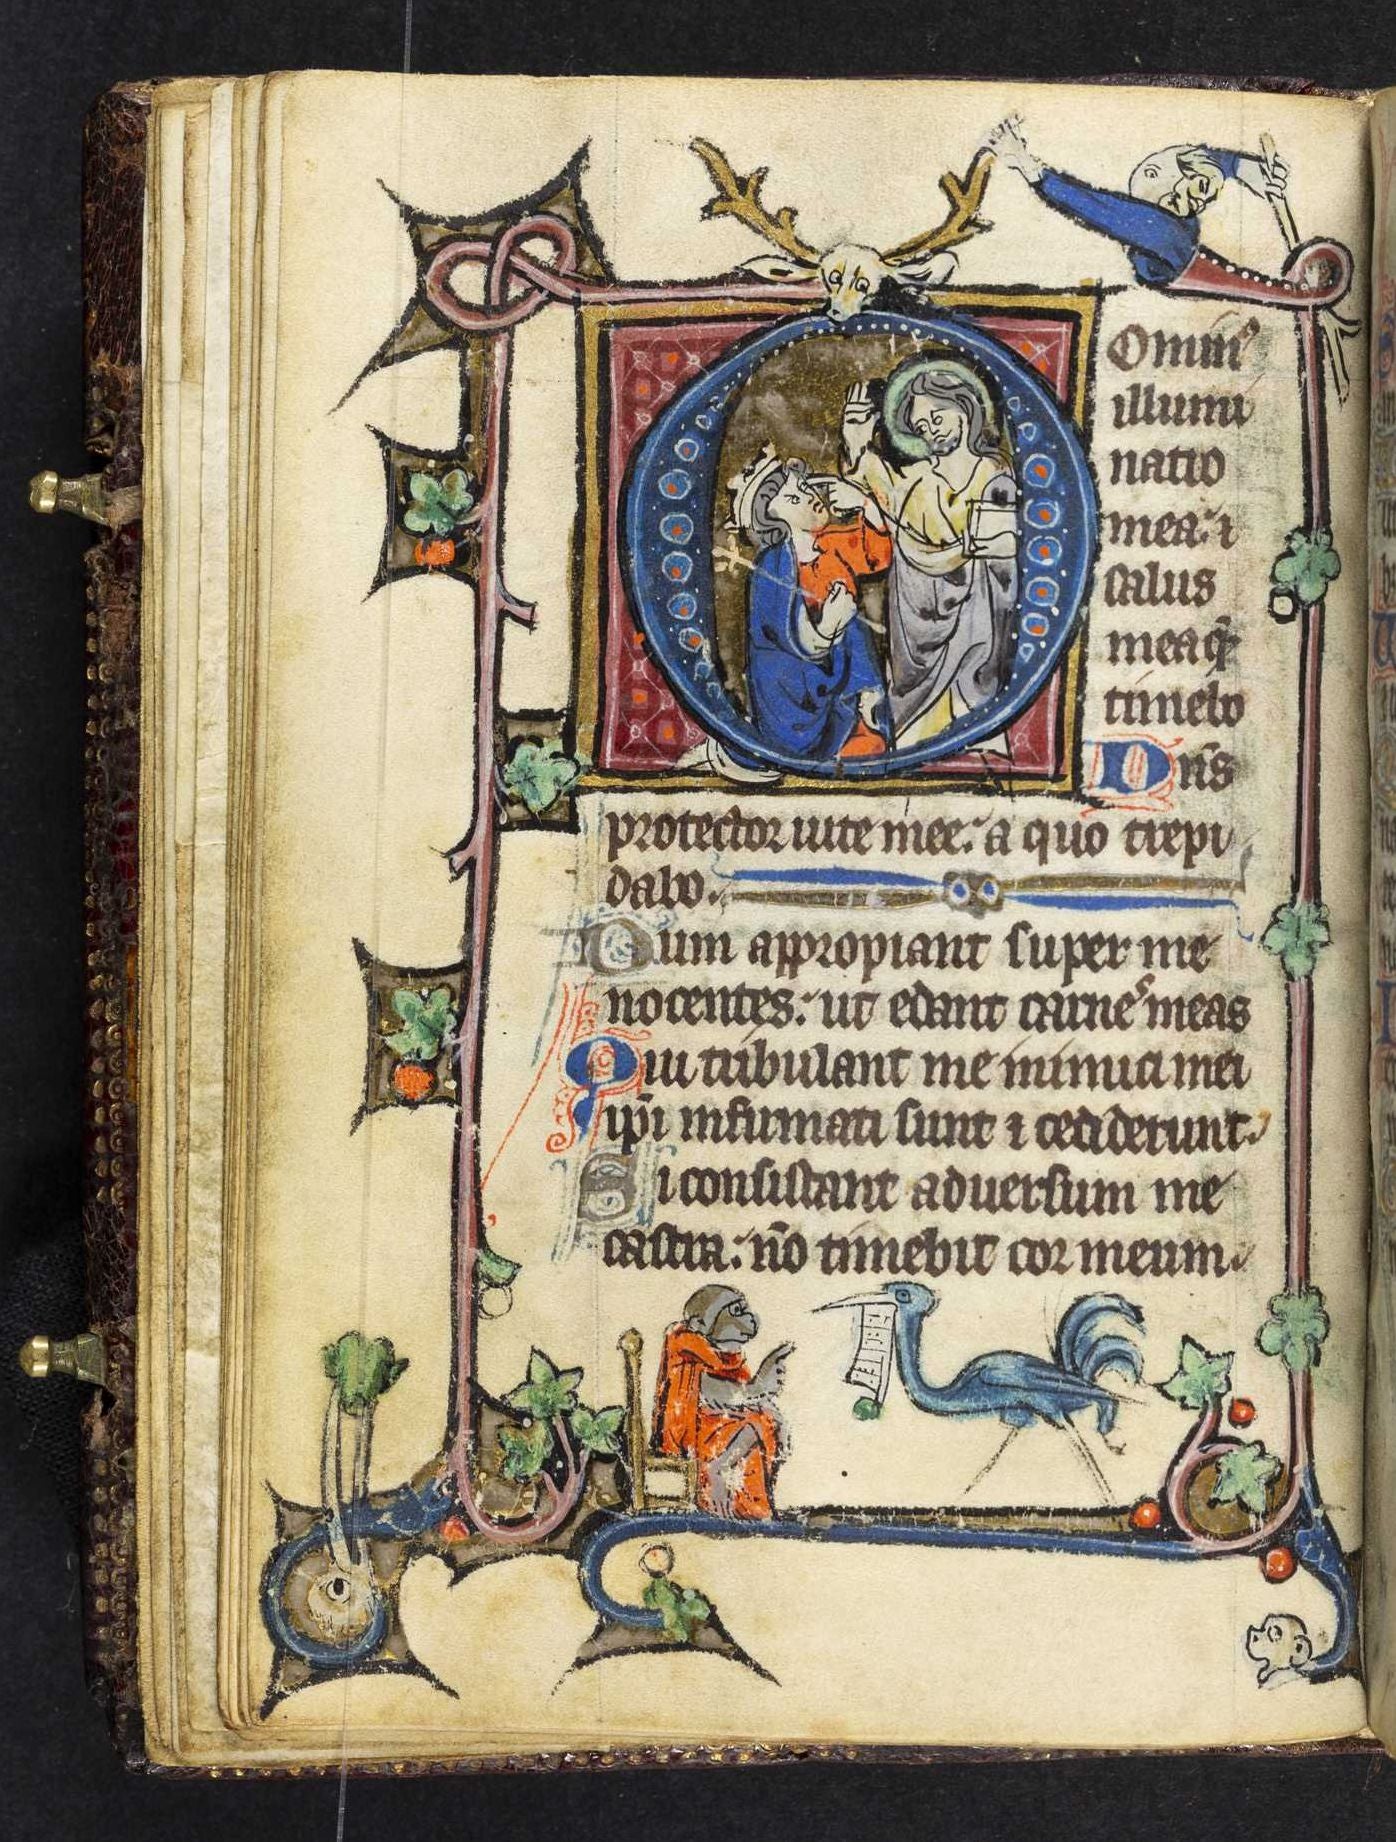 Omin⁹
illumi
natio
mea: ⁊
salus
mea q̄
timebo
Dn̄s
protector uite mee: a quo trepi
dabo.
Dum appropiant super me
nocentes: ut edant carnes meas
Qui tribulant me inimici mei
ip̄i infirmati sunt ⁊ ceciderunt.
Si consistant aduersum me
castra: nō timebit cor meum.